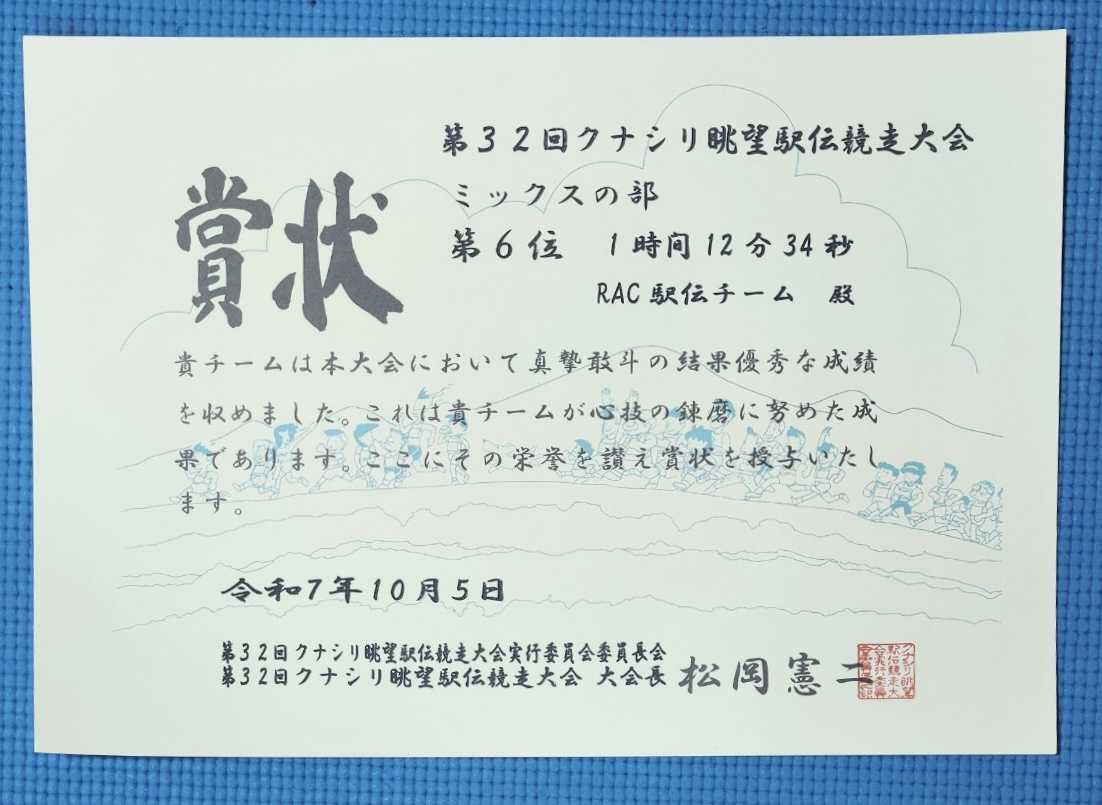 賞状
第32回クナシリ眺望駅伝競走大会
ミックスの部
第6位 1時間12分34秒
RAC駅伝チーム 殿
貴チームは本大会において真摯敢斗の結果優秀な成績
を収めました。これは貴チームが心技の錬磨に努めた成
果であります。ここにその栄誉を讃え賞状を授与いたし
ます。
令和7年10月5日
第32回クナシリ眺望駅伝競走大会実行委員会委員長会
第32回クナシリ眺望駅伝競走大会 大会長 松岡憲二